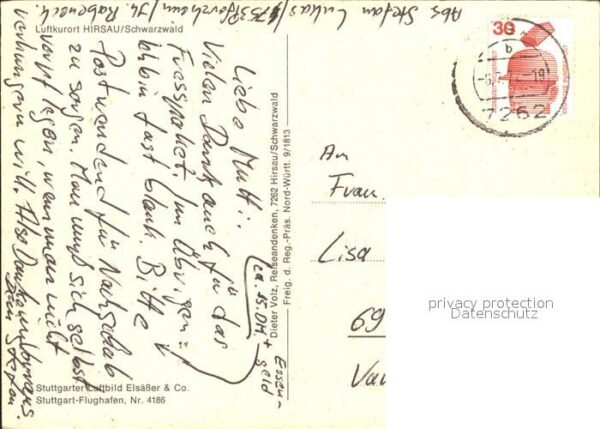 Abs. Stefan Lukas / 753 Pforzheim /
Luftkurort HIRSAU/Schwarzwald
Liebe Mutti:
Vielen Dank auch für das
Fresspaket. Im Übrigen
bin fast blank. Bitte
Postwendend für Nachschub
zu sorgen. Man muß sich selbst
was man nicht
verhungern will. Also Danke im Voraus
Dein Stefan.
(ca. 15.DM +
Essen-
geld
Stuttgarter Luftbild Elsäßer & Co.
Stuttgart-Flughafen, Nr. 4186
Dieter Volz, Reiseandenken, 7262 Hirsau/Schwarzwald
Freig. d. Reg.-Präs. Nord-Württ. 9/1813
30
b
7262
An
Frau
Lisa
69
privacy protection
Datenschutz